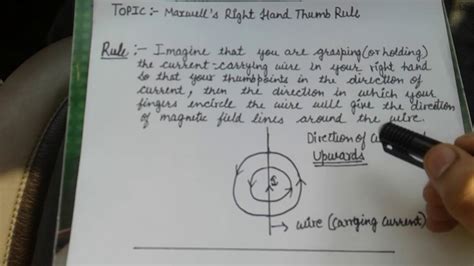 TOPIC:- Maxwell's Right Hand Thumb Rule
Rule:- Imagine that you are grasping (or holding)
the current-carrying wire in your right hand
so that your thumb points in the direction of
current, then the direction in which your
fingers encircle the wire will give the direction
of magnetic field lines around the wire.
Direction of
Upwards
wire (carrying current)